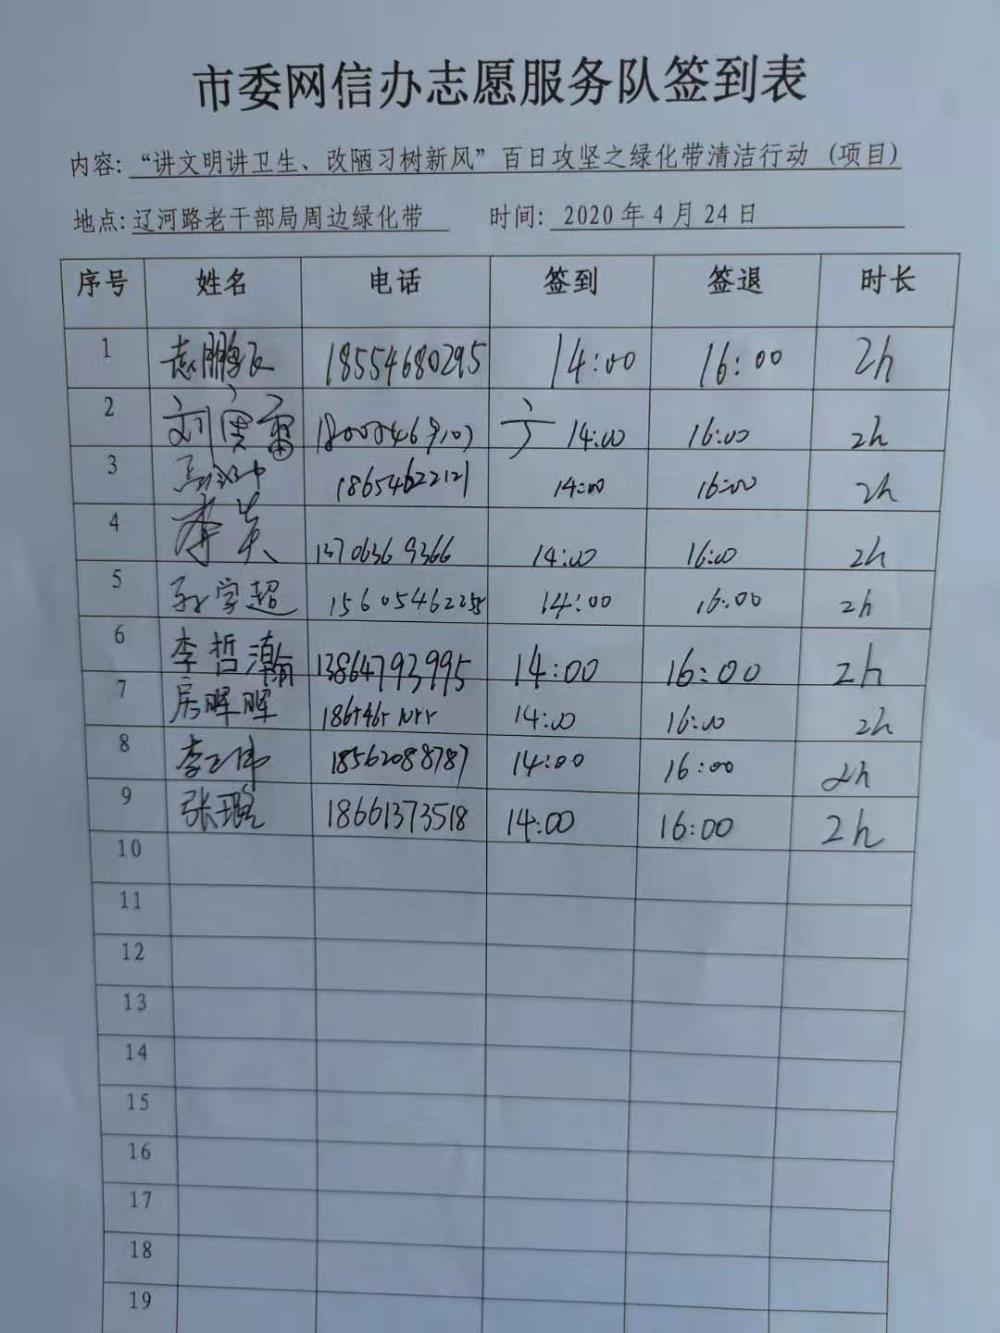 市委网信办志愿服务队签到表
内容:“讲文明讲卫生、改陋习树新风”百日攻坚之绿化带清洁行动(项目)
地点:辽河路老干部局周边绿化带 时间: 2020年4月24日
序号 姓名 电话 签到 签退 时长
1 18554680295 14:00 16:00 2h
2 刘 14:00 16:00 2h
3 18654622121 14:00 16:00 2h
4 李 13706369366 14:00 16:00 2h
5 孙学超 14:00 16:00 2h
6 李哲瀚 13864793995 14:00 16:00 2h
7 房晖晖 14:00 16:00 2h
8 李 18562088787 14:00 16:00 2h
9 张璐 18661373518 14:00 16:00 2h
10
11
12
13
14
15
16
17
18
19